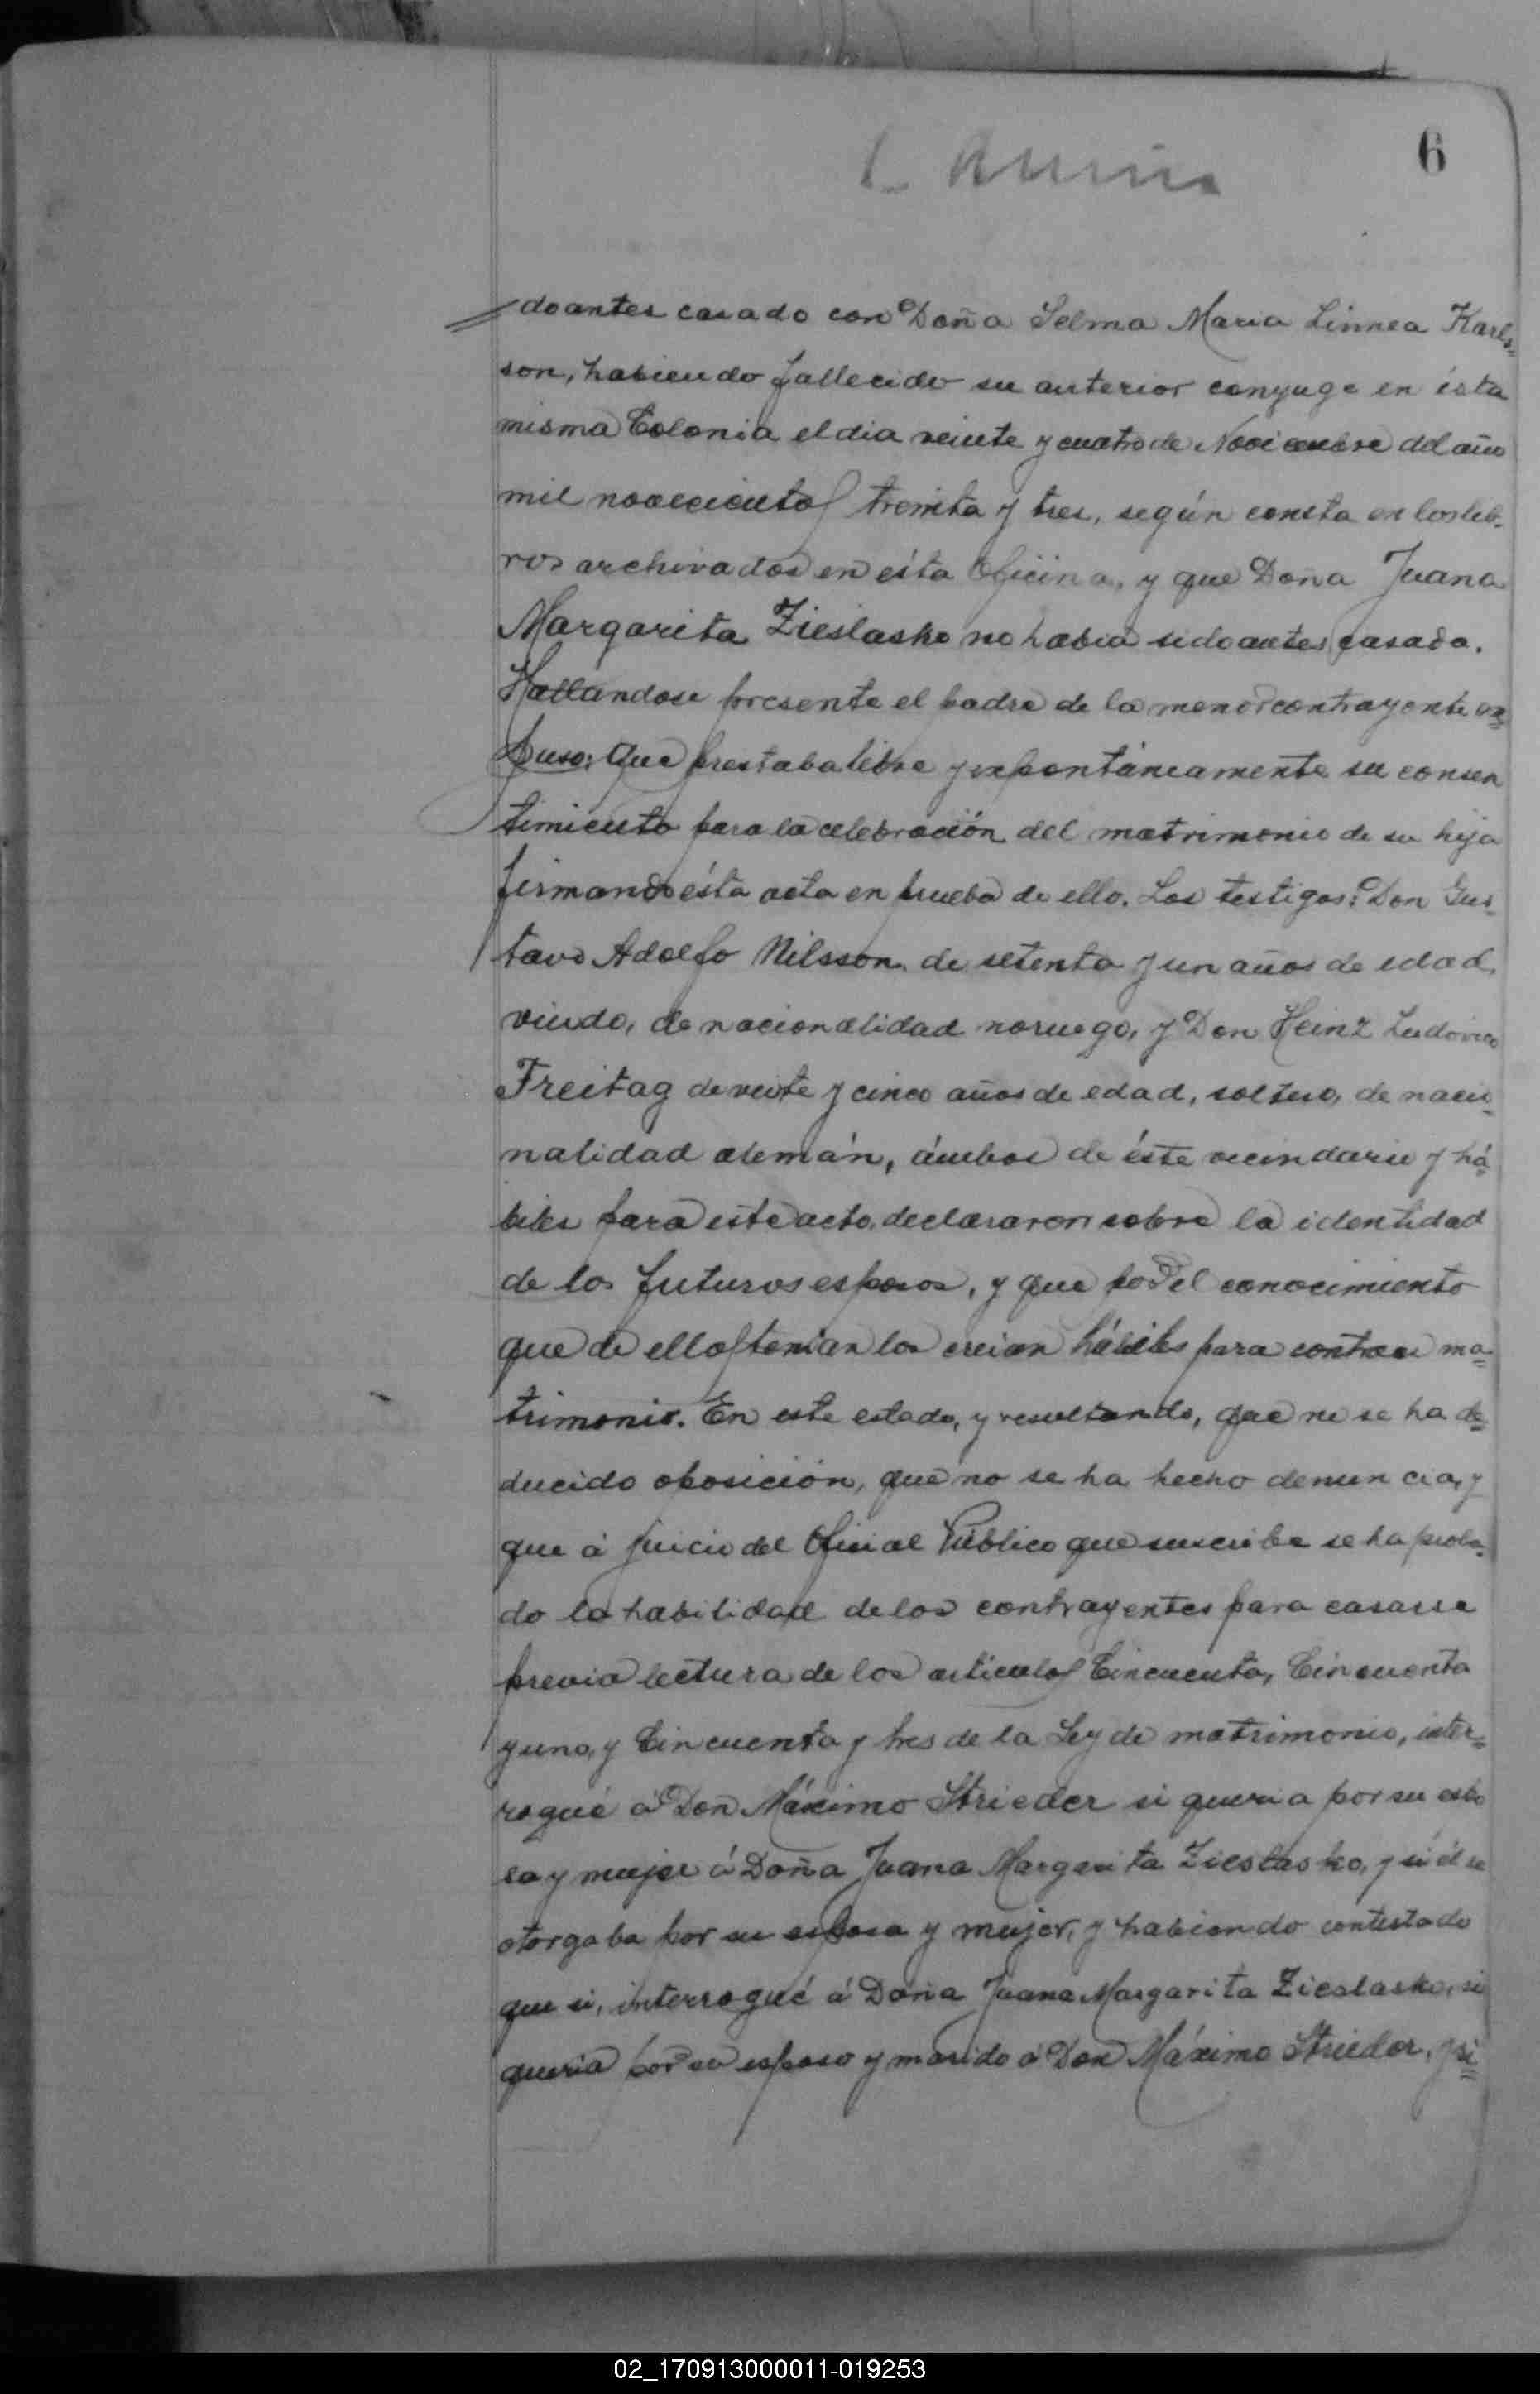 6
do antes casado con Doña Selma Maria Linnea Karls=
son, habiendo fallecido su anterior conyuge en ésta
misma Colonia el dia veinte y cuatro de Noviembre del año
mil novecientos treinta y tres, según consta en los lib-
ros archivados en ésta Oficina, y que Doña Juana
Margarita Zieslasko no habia sido antes casada.
Hallandose presente el padre de la menor contrayente ex=
puso: Que prestaba libre y expontáneamente su consen
timiento para la celebración del matrimonio de su hija
firmando ésta acta en prueba de ello. Los testigos: Don Gus-
tavo Adolfo Nilsson, de setenta y un años de edad,
viudo, de nacionalidad noruego, y Don Heinz Ludovico
Freitag de veinte y cinco años de edad, soltero, de nacio-
nalidad alemán, ámbos de éste vecindario y há-
biles para este acto, declararon sobre la identidad
de los futuros esposos, y que por el conocimiento
que de ellos tenian los creian hábiles para contraer ma=
trimonio. En este estado, y resultando, que no se ha de=
ducido oposición, que no se ha hecho denuncia, y
que á juicio del Oficial Público que suscribe se ha proba-
do la habilidad de los contrayentes para casarse
previa lectura de los articulos Cincuenta, Cincuenta
y uno, y Cincuenta y tres de la Ley de matrimonio, inter=
rogué á Don Máximo Strieder si queria por su espo
sa y mujer á Doña Juana Margarita Zieslasko, y si él se
otorgaba por su esposa y mujer, y habiendo contestado
que si, interrogué á Doña Juana Margarita Zieslasko, si
queria por su esposo y marido á Don Máximo Strieder, y si=
02_170913000011-019253